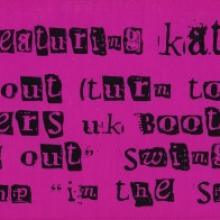 eaturing kat
out (turn to
ers uk Boot
out" swing
mp "im the S